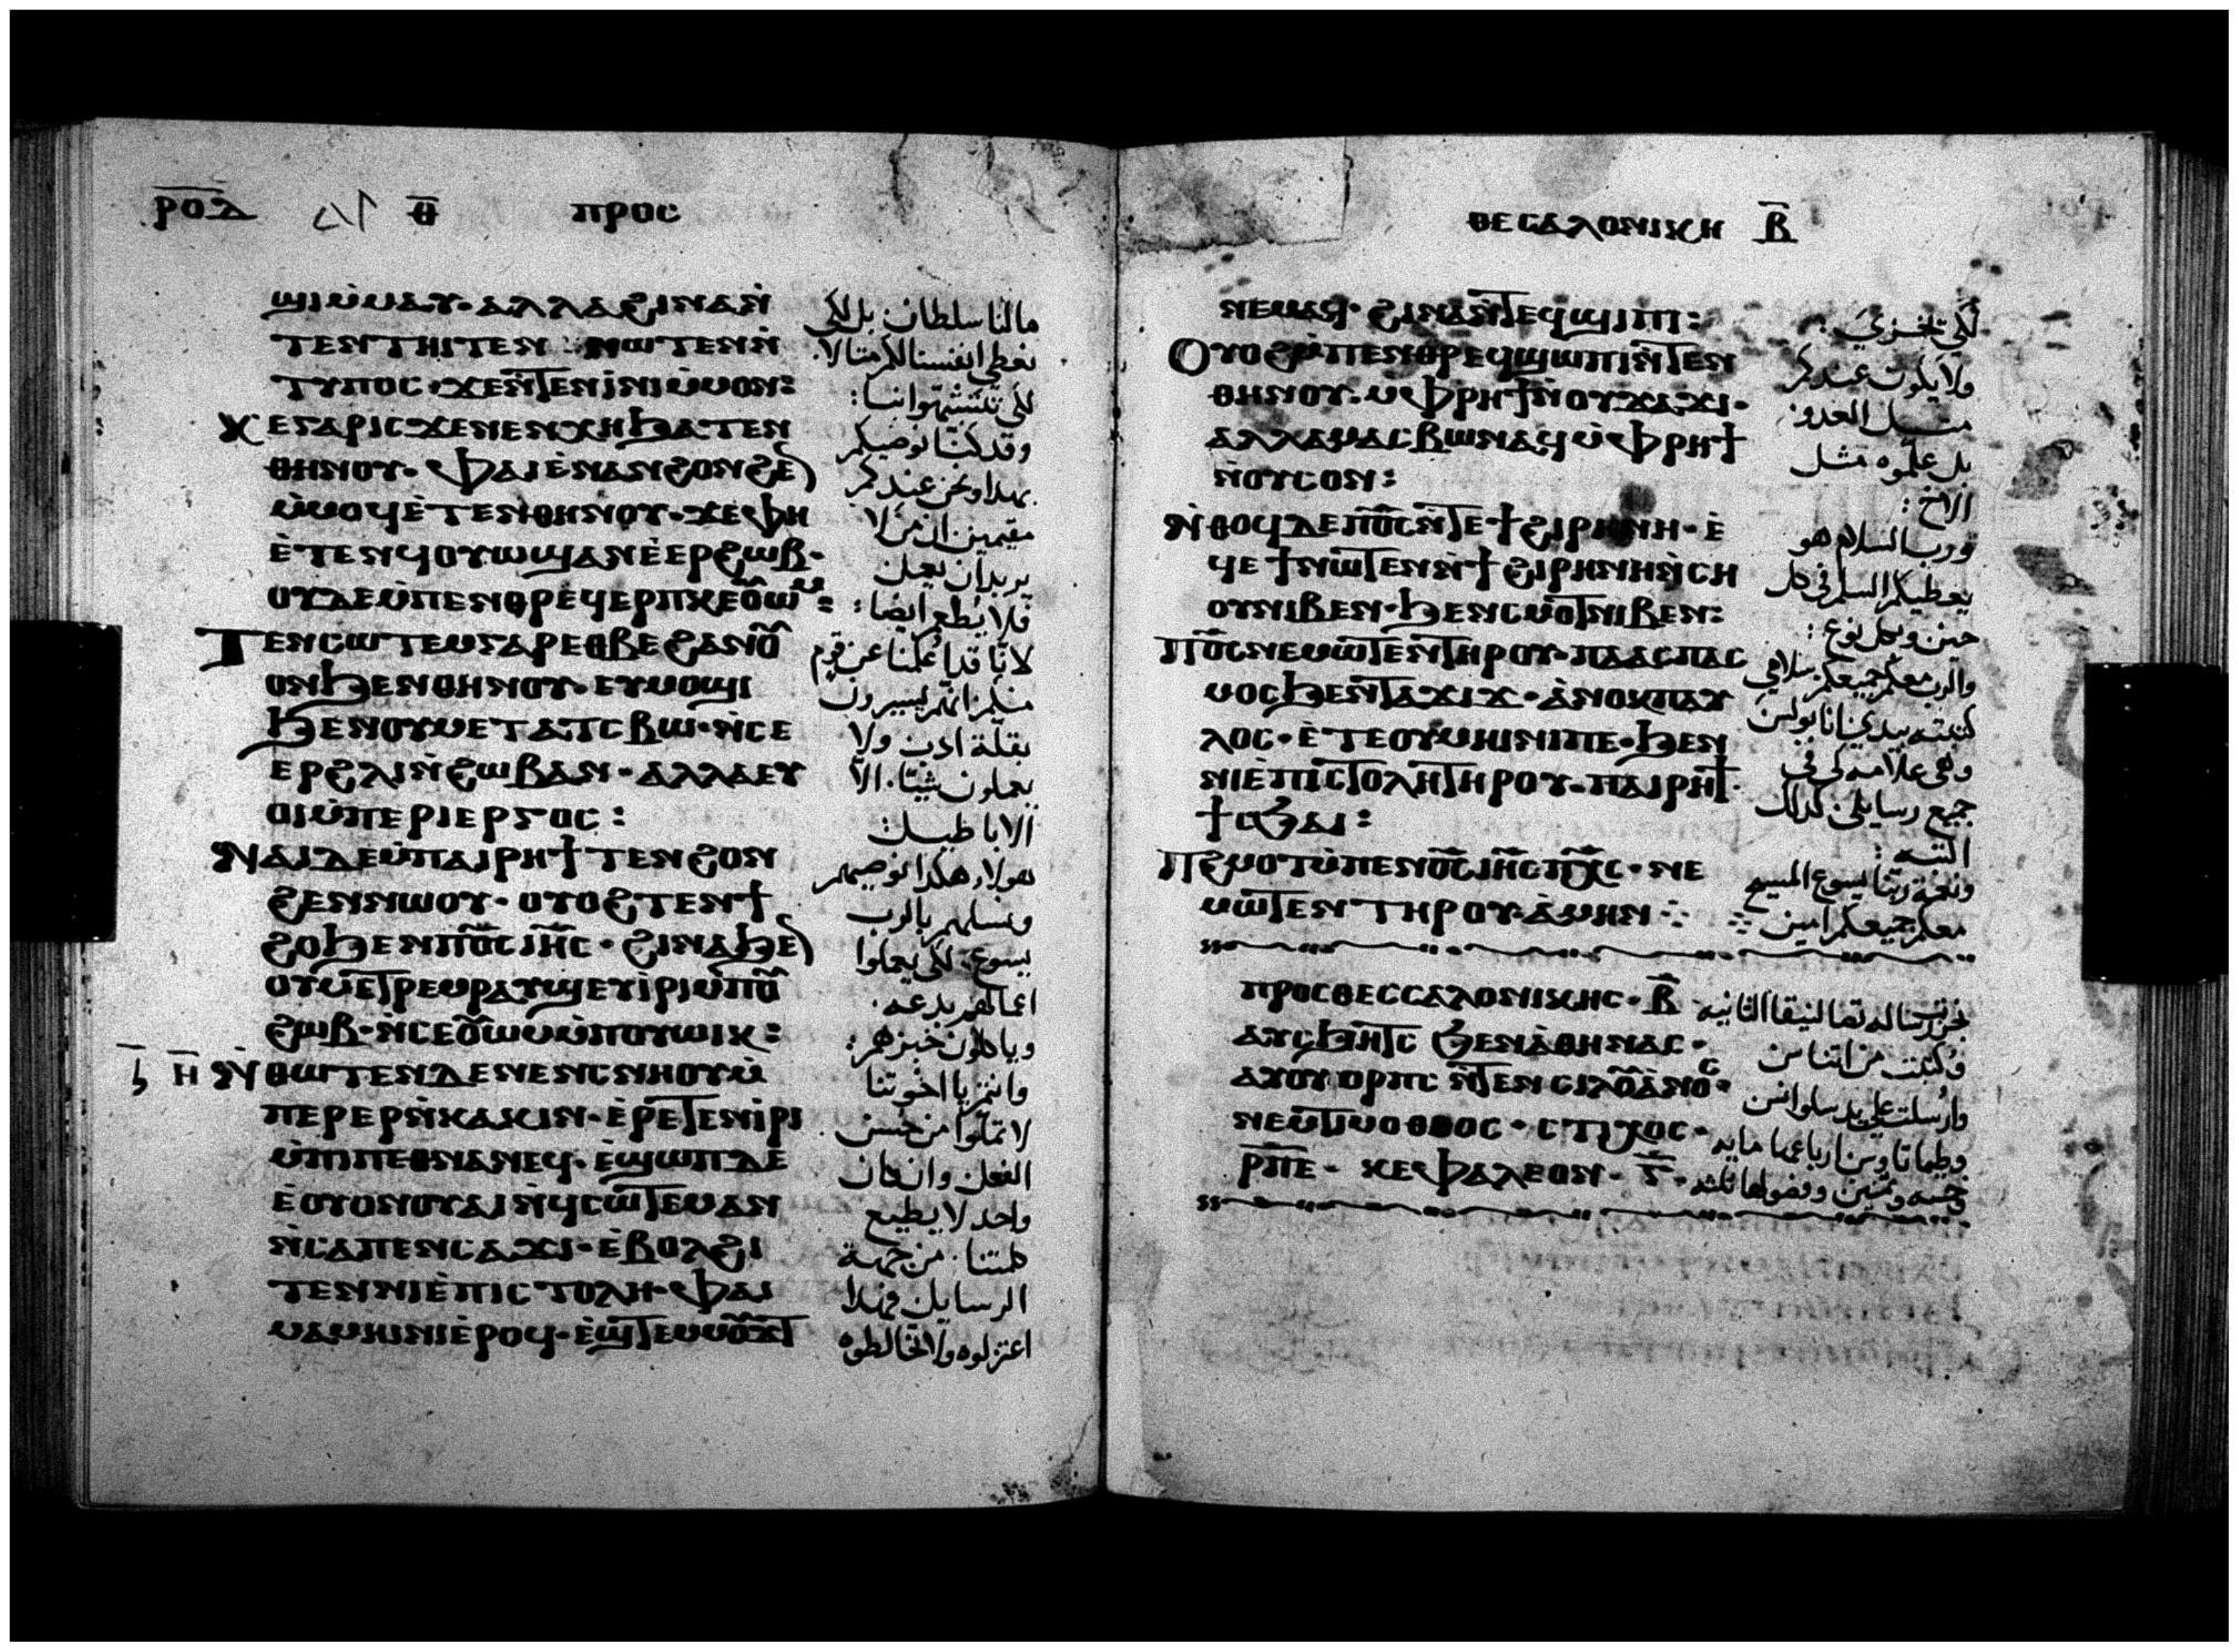 ⲣⲟⲇ ⲑ ⲡⲣⲟⲥ
ϣⲓⲙⲙⲁⲩ· ⲁⲗⲗⲁϩⲓⲛⲁⲛ̀
ⲧⲉⲛⲧⲏⲓⲧⲉⲛ ⲛⲱⲧⲉⲛⲛ̀
ⲧⲩⲡⲟⲥ· ϫⲉⲛ̀ⲧⲉⲛⲓ̀ⲛⲓⲙ̀ⲙⲟⲛ:
ⲕⲉⲅⲁⲣⲓⲥϫⲉⲛⲉⲛⲭⲏϧⲁⲧⲉⲛ
ⲑⲏⲛⲟⲩ· ⲫⲁⲓⲉ̀ⲛⲁⲛϩⲟⲛϩⲉ
ⲙ̀ⲙⲟϥⲉ̀ⲧⲉⲛⲑⲏⲛⲟⲩ· ϫⲉⲫⲏ
ⲉ̀ⲧⲉⲛϥⲟⲩⲱϣⲁⲛⲉ̀ⲉⲣϩⲱⲃ·
ⲟⲩⲇⲉⲙ̀ⲡⲉⲛⲑⲣⲉϥⲉⲣⲡⲕⲉⲟ̅ⲱⲙ:
ⲧⲉⲛⲥⲱⲧⲉⲙⲅⲁⲣⲉⲑⲃⲉϩⲁⲛⲟ̅
ⲟⲛϧⲉⲛⲑⲏⲛⲟⲩ· ⲉⲩⲙⲟϣⲓ
ϧⲉⲛⲟⲩⲙⲉⲧⲁⲧⲥⲃⲱ· ⲛ̀ⲥⲉ
ⲉⲣϩⲗⲓⲛ̀ϩⲱⲃⲁⲛ· ⲁⲗⲗⲁⲉⲩ
ⲟⲓⲙ̀ⲡⲉⲣⲓⲉⲣⲅⲟⲥ:
ⲛⲁⲓⲇⲉⲙ̀ⲡⲁⲓⲣⲏϯⲧⲉⲛϩⲟⲛ
ϩⲉⲛⲛⲱⲟⲩ· ⲟⲩⲟϩⲧⲉⲛϯ
ϩⲟϧⲉⲛⲡⲟ̅ⲥ̅ⲓⲏ̅ⲥ̅· ϩⲓⲛⲁϧⲉ
ⲟⲩⲙⲉⲧⲣⲉⲙⲣⲁⲩϣⲉⲩⲓ̀ⲣⲓⲙ̀ⲡⲟ̅
ϩⲱⲃ· ⲛ̀ⲥⲉⲟ̅ⲱⲙⲙ̀ⲡⲟⲩⲱⲓⲕ:
ⲏ̅ ⲛ̀ⲑⲱⲧⲉⲛⲇⲉⲛⲉⲛⲥⲛⲏⲟⲩⲙ̀
ⲡⲉⲣⲉⲣⲛ̀ⲕⲁⲕⲓⲛ· ⲉ̀ⲣⲉⲧⲉⲛⲓ̀ⲣⲓ
ⲙ̀ⲡⲡⲉⲑⲛⲁⲛⲉϥ· ⲉ̀ϣⲱⲡⲇⲉ
ⲉ̀ⲟⲩⲟⲛⲟⲩⲁⲓⲛ̀ϥⲥⲱⲧⲉⲙⲁⲛ
ⲛ̀ⲥⲁⲡⲉⲛⲥⲁϫⲓ· ⲉ̀ⲃⲟⲗϩⲓ
ⲧⲉⲛⲛⲓⲉ̀ⲡⲓⲥⲧⲟⲗⲏ· ⲫⲁⲓ
ⲙⲁⲙⲏⲓⲛⲓⲉ̀ⲣⲟϥ· ⲉ̀ϣⲧⲉⲙⲙⲟ̅ϫⲧ
مالنا سلطان بل لكي
نعطي انفسنا لكم مثالا
لكي تتشبهوا بنا:
وقد كنا نوصيكم
بهدا ونحن عندكم
مقيمين ان من لا
يريد ان يعمل
فلا يطعم ايضا:
لانا قد اعلمنا عن قوم
منكم انهم يسيرون
بقلة ادب ولا
يعملون شيئا· الا
الاباطيل:
هولاء هكدا نوصيهم
ونسلهم بالرب
يسوع: لكي يعملوا
اعمالهم بدعه·
وياكلون خبزهم:
وانتم يا اخوتنا
لا تملوا من حسن
الفعل وان كان
واحد لا يطيع
كلمتنا· من جهة
الرسايل فهدا
اعتزلوه ولا تخالطوه
ⲑⲉⲥⲁⲗⲟⲛⲓⲕⲏ ⲃ̅
ⲛⲉⲙⲁϥ· ϩⲓⲛⲁⲛ̀ⲧⲉϥϣⲓⲡⲓ:
ⲟⲩⲟϩⲙ̀ⲡⲉⲛⲑⲣⲉϥϣⲱⲡⲓⲛ̀ⲧⲉⲛ
ⲑⲏⲛⲟⲩ· ⲙⲫⲣⲏϯⲛ̀ⲟⲩϫⲁϫⲓ·
ⲁⲗⲗⲁⲙⲁⲥⲃⲱⲛⲁϥⲙ̀ⲫⲣⲏϯ
ⲛ̀ⲟⲩⲥⲟⲛ:
ⲛ̀ⲑⲟϥⲇⲉⲡⲟ̅ⲥ̅ⲛ̀ⲧⲉϯϩⲓⲣⲏⲛⲏ· ⲉ̀
ϥⲉϯⲛⲱⲧⲉⲛⲛ̀ϯϩⲓⲣⲏⲛⲏⲛ̀ⲥⲏ
ⲟⲩⲛⲓⲃⲉⲛ· ϧⲉⲛⲥⲙⲟⲧⲛⲓⲃⲉⲛ:
ⲡⲟ̅ⲥ̅ⲛⲉⲙⲱⲧⲉⲛⲧⲏⲣⲟⲩ· ⲡⲁⲁⲥⲡⲁⲥ
ⲙⲟⲥϧⲉⲛⲧⲁϫⲓϫ· ⲁ̀ⲛⲟⲕⲡⲁⲩ
ⲗⲟⲥ· ⲉ̀ⲧⲉⲟⲩⲙⲏⲓⲛⲓⲡⲉ· ϧⲉⲛ
ⲛⲓⲉ̀ⲡⲓⲥⲧⲟⲗⲏⲧⲏⲣⲟⲩ· ⲡⲁⲓⲣⲏϯ·
ϯⲥϧⲁⲓ:
ⲡϩⲙⲟⲧⲙ̀ⲡⲉⲛⲟ̅ⲥ̅ⲓⲏ̅ⲥ̅ⲡⲭ̅ⲥ̅· ⲛⲉ
ⲙⲱⲧⲉⲛⲧⲏⲣⲟⲩ· ⲁ̀ⲙⲏⲛ
لكي تخزي:
ولا يكون عندكم
مثل العدو:
بل علموه مثل
الاخ:
ورب السلام هو
يعطيكم السلم في كل
حين وبكل نوع:
والرب معكم جميعكم سلامي
كتبته بيدي انا بولس
وهي علامه لي في
جميع رسايلي كدلك
اكتبه:
ونعمة ربنا يسوع المسيح
معكم جميعكم امين
ⲡⲣⲟⲥⲑⲉⲥⲥⲁⲗⲟⲛⲓⲕⲏⲥ· ⲃ̅
ⲁⲩⲥϧⲏⲧⲥ ϧⲉⲛⲁ̀ⲑⲏⲛⲁⲥ·
ⲁⲩⲟⲩⲟⲣⲡⲥ ⲛ̀ⲧⲉⲛⲥⲓⲗⲟ̅ⲁ̀ⲛⲟⲥ·
ⲛⲉⲙⲧⲓⲙⲟⲑⲉⲟⲥ· ⲥⲧⲓⲭⲟⲥ·
ⲣⲡ̅ⲉ· ⲕⲉⲫⲁⲗⲉⲟⲛ· ⲋ̅·
رساله تصالنيقا الثانيه
وكتبت من اثناس
وارسلت علي يد سلوانس
وطيماتاوس ارباعها مايه
وخمسه وثمنين وفصولها